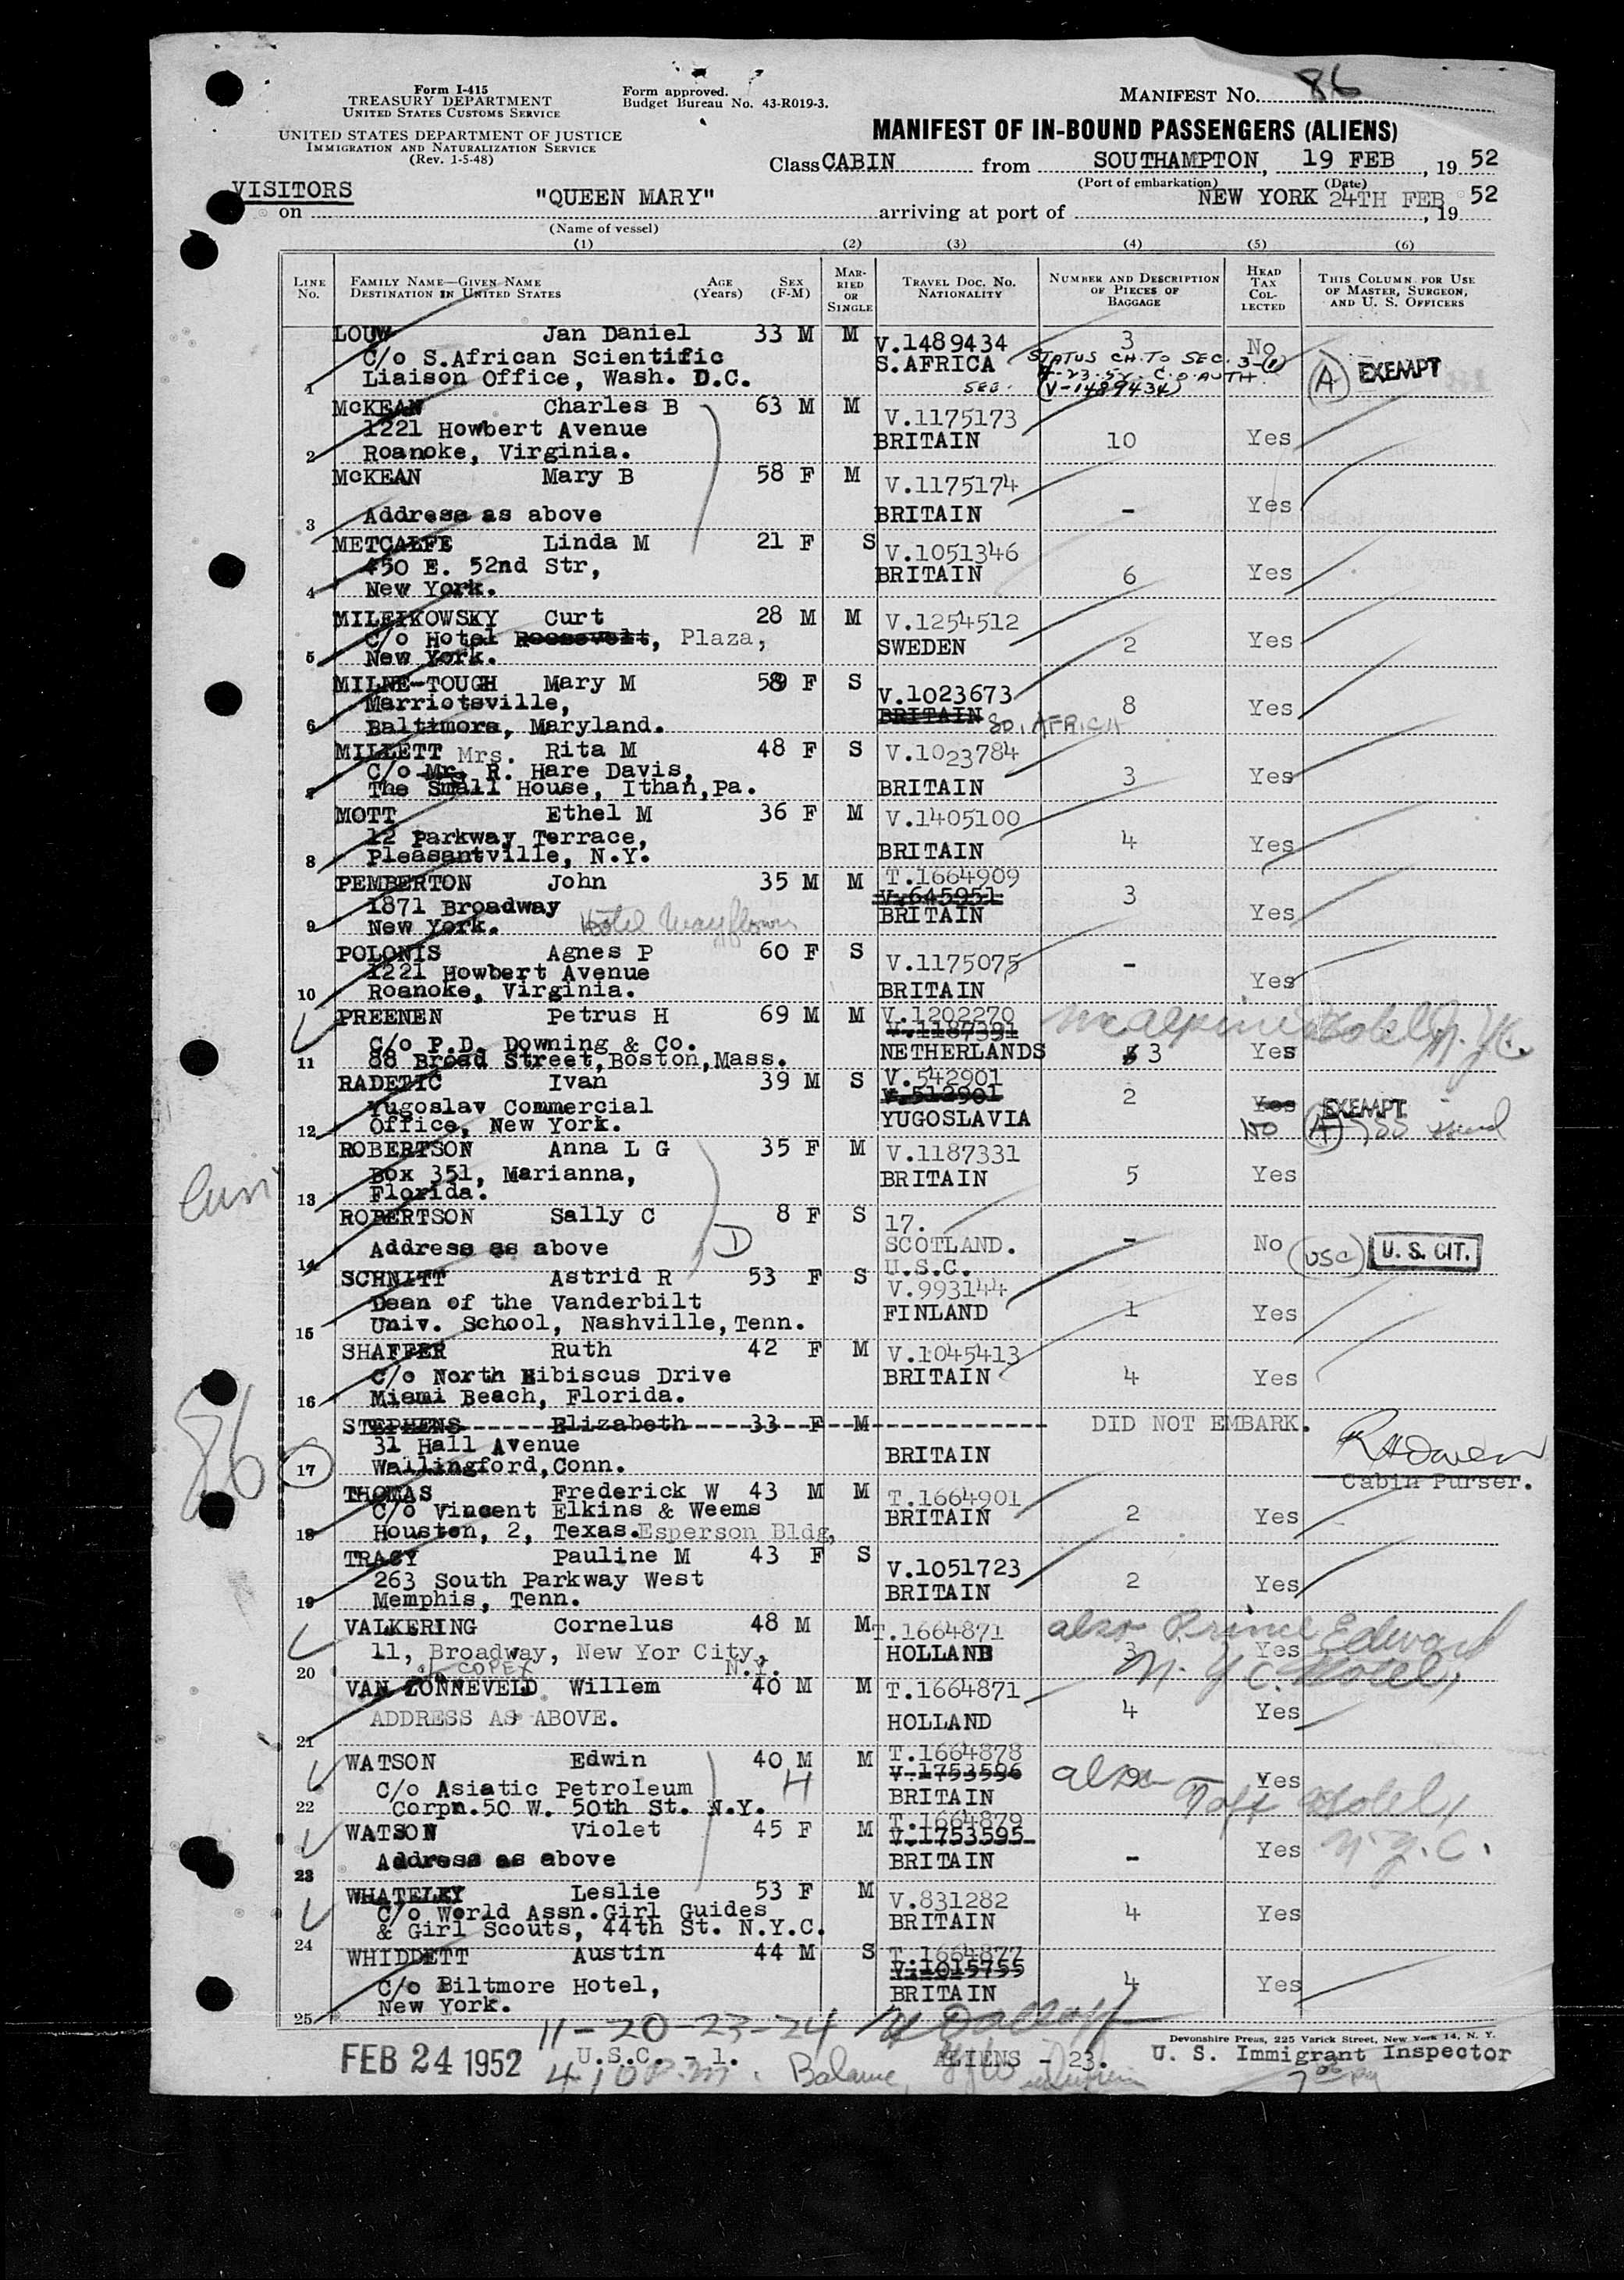 Form I-415
TREASURY DEPARTMENT
UNITED STATES CUSTOMS SERVICE
UNITED STATES DEPARTMENT OF JUSTICE
IMMIGRATION AND NATURALIZATION SERVICE
(Rev. 1-5-48)
Form approved.
Budget Bureau No. 43-R019-3.
MANIFEST NO. 86
MANIFEST OF IN-BOUND PASSENGERS (ALIENS)
Class CABIN from SOUTHAMPTON, 19 FEB, 19 52
(Port of embarkation) (Date)
VISITORS
on "QUEEN MARY" arriving at port of NEW YORK 24TH FEB, 19 52
(Name of vessel)
(1) (2) (3) (4) (5) (6)
LINE NO. FAMILY NAME—GIVEN NAME DESTINATION IN UNITED STATES AGE (Years) SEX (F-M) MARRIED OR SINGLE TRAVEL DOC. NO. NATIONALITY NUMBER AND DESCRIPTION OF PIECES OF BAGGAGE HEAD TAX COLLECTED THIS COLUMN FOR USE OF MASTER, SURGEON, AND U. S. OFFICERS
LOUW Jan Daniel 33 M M V.1489434 3 No
C/o S.African Scientific S.AFRICA STATUS CH. TO SEC. 3-(1) (A) EXEMPT
1 Liaison Office, Wash. D.C. SEE. (V-1489434)
McKEAN Charles B 63 M M V.1175173
1221 Howbert Avenue BRITAIN 10 Yes
2 Roanoke, Virginia.
McKEAN Mary B 58 F M V.1175174
3 Address as above BRITAIN - Yes
METCALFE Linda M 21 F S V.1051346
450 E. 52nd Str, BRITAIN 6 Yes
4 New York.
MILEIKOWSKY Curt 28 M M V.1254512
C/o Hotel Roosevelt, Plaza, SWEDEN 2 Yes
5 New York.
MILNE-TOUGH Mary M 59 F S V.1023673
Marriotsville, BRITAIN SO. AFRICA 8 Yes
6 Baltimore, Maryland.
MILLETT Mrs. Rita M 48 F S V.1023784
C/o Mr. R. Hare Davis, BRITAIN 3 Yes
7 The Small House, Ithan, Pa.
MOTT Ethel M 36 F M V.1405100
12 Parkway Terrace, BRITAIN 4 Yes
8 Pleasantville, N.Y.
PEMBERTON John 35 M M T.1664909 3
1871 Broadway V.645951 BRITAIN Yes
9 New York. Hotel Mayflower
POLONIS Agnes P 60 F S V.1175075 -
1221 Howbert Avenue BRITAIN Yes
10 Roanoke, Virginia.
PREENEN Petrus H 69 M M V.1202270 McAlpin Hotel N.Y.C.
C/o P.D. Downing & Co. V.1187391
11 88 Broad Street, Boston, Mass. NETHERLANDS 3 Yes
RADETIC Ivan 39 M S V.542901
Yugoslav Commercial V.512901 2 Yes EXEMPT
12 Office, New York. YUGOSLAVIA No (A)
ROBERTSON Anna L G 35 F M V.1187331
Box 351, Marianna, BRITAIN 5 Yes
13 Florida.
ROBERTSON Sally C 8 F S 17.
14 Address as above D SCOTLAND. - No (USC) U. S. CIT.
U.S.C.
SCHNITT Astrid R 53 F S V.993144
Dean of the Vanderbilt FINLAND 1 Yes
15 Univ. School, Nashville, Tenn.
SHAFFER Ruth 42 F M V.1045413
C/o North Hibiscus Drive BRITAIN 4 Yes
16 Miami Beach, Florida.
STEPHENS Elizabeth 33 F M DID NOT EMBARK.
31 Hall Avenue BRITAIN
17 Wallingford, Conn. Cabin Purser.
THOMAS Frederick W 43 M M T.1664901
C/o Vincent Elkins & Weems BRITAIN 2 Yes
18 Houston, 2, Texas. Esperson Bldg,
TRACY Pauline M 43 F S V.1051723
263 South Parkway West BRITAIN 2 Yes
19 Memphis, Tenn.
VALKERING Cornelus 48 M M T.1664871 also Prince Edward
11, Broadway, New Yor City, N.Y. HOLLAND 3 Yes N.Y.C. Hotel,
20 c/o COPEX
VAN ZONNEVELD Willem 40 M M T.1664871
ADDRESS AS ABOVE. HOLLAND 4 Yes
21
WATSON Edwin 40 M M T.1664878
C/o Asiatic Petroleum H V-1753596 also 9 Yes
22 Corpn. 50 W. 50th St. N.Y. BRITAIN Taft Hotel,
WATSON Violet 45 F M T.1664879
V.1753595 Yes N.Y.C.
23 Address as above BRITAIN -
WHATELEY Leslie 53 F M V.831282
C/o World Assn. Girl Guides BRITAIN 4 Yes
24 & Girl Scouts, 44th St. N.Y.C.
WHIDDETT Austin 44 M S T.1664877
C/o Biltmore Hotel, V.1015755 4 Yes
25 New York. BRITAIN
86
11-20-23-24
Devonshire Press, 225 Varick Street, New York 14, N. Y.
FEB 24 1952 U.S.C. - 1. ALIENS - 23. U. S. Immigrant Inspector
4:10 P.M. Balance